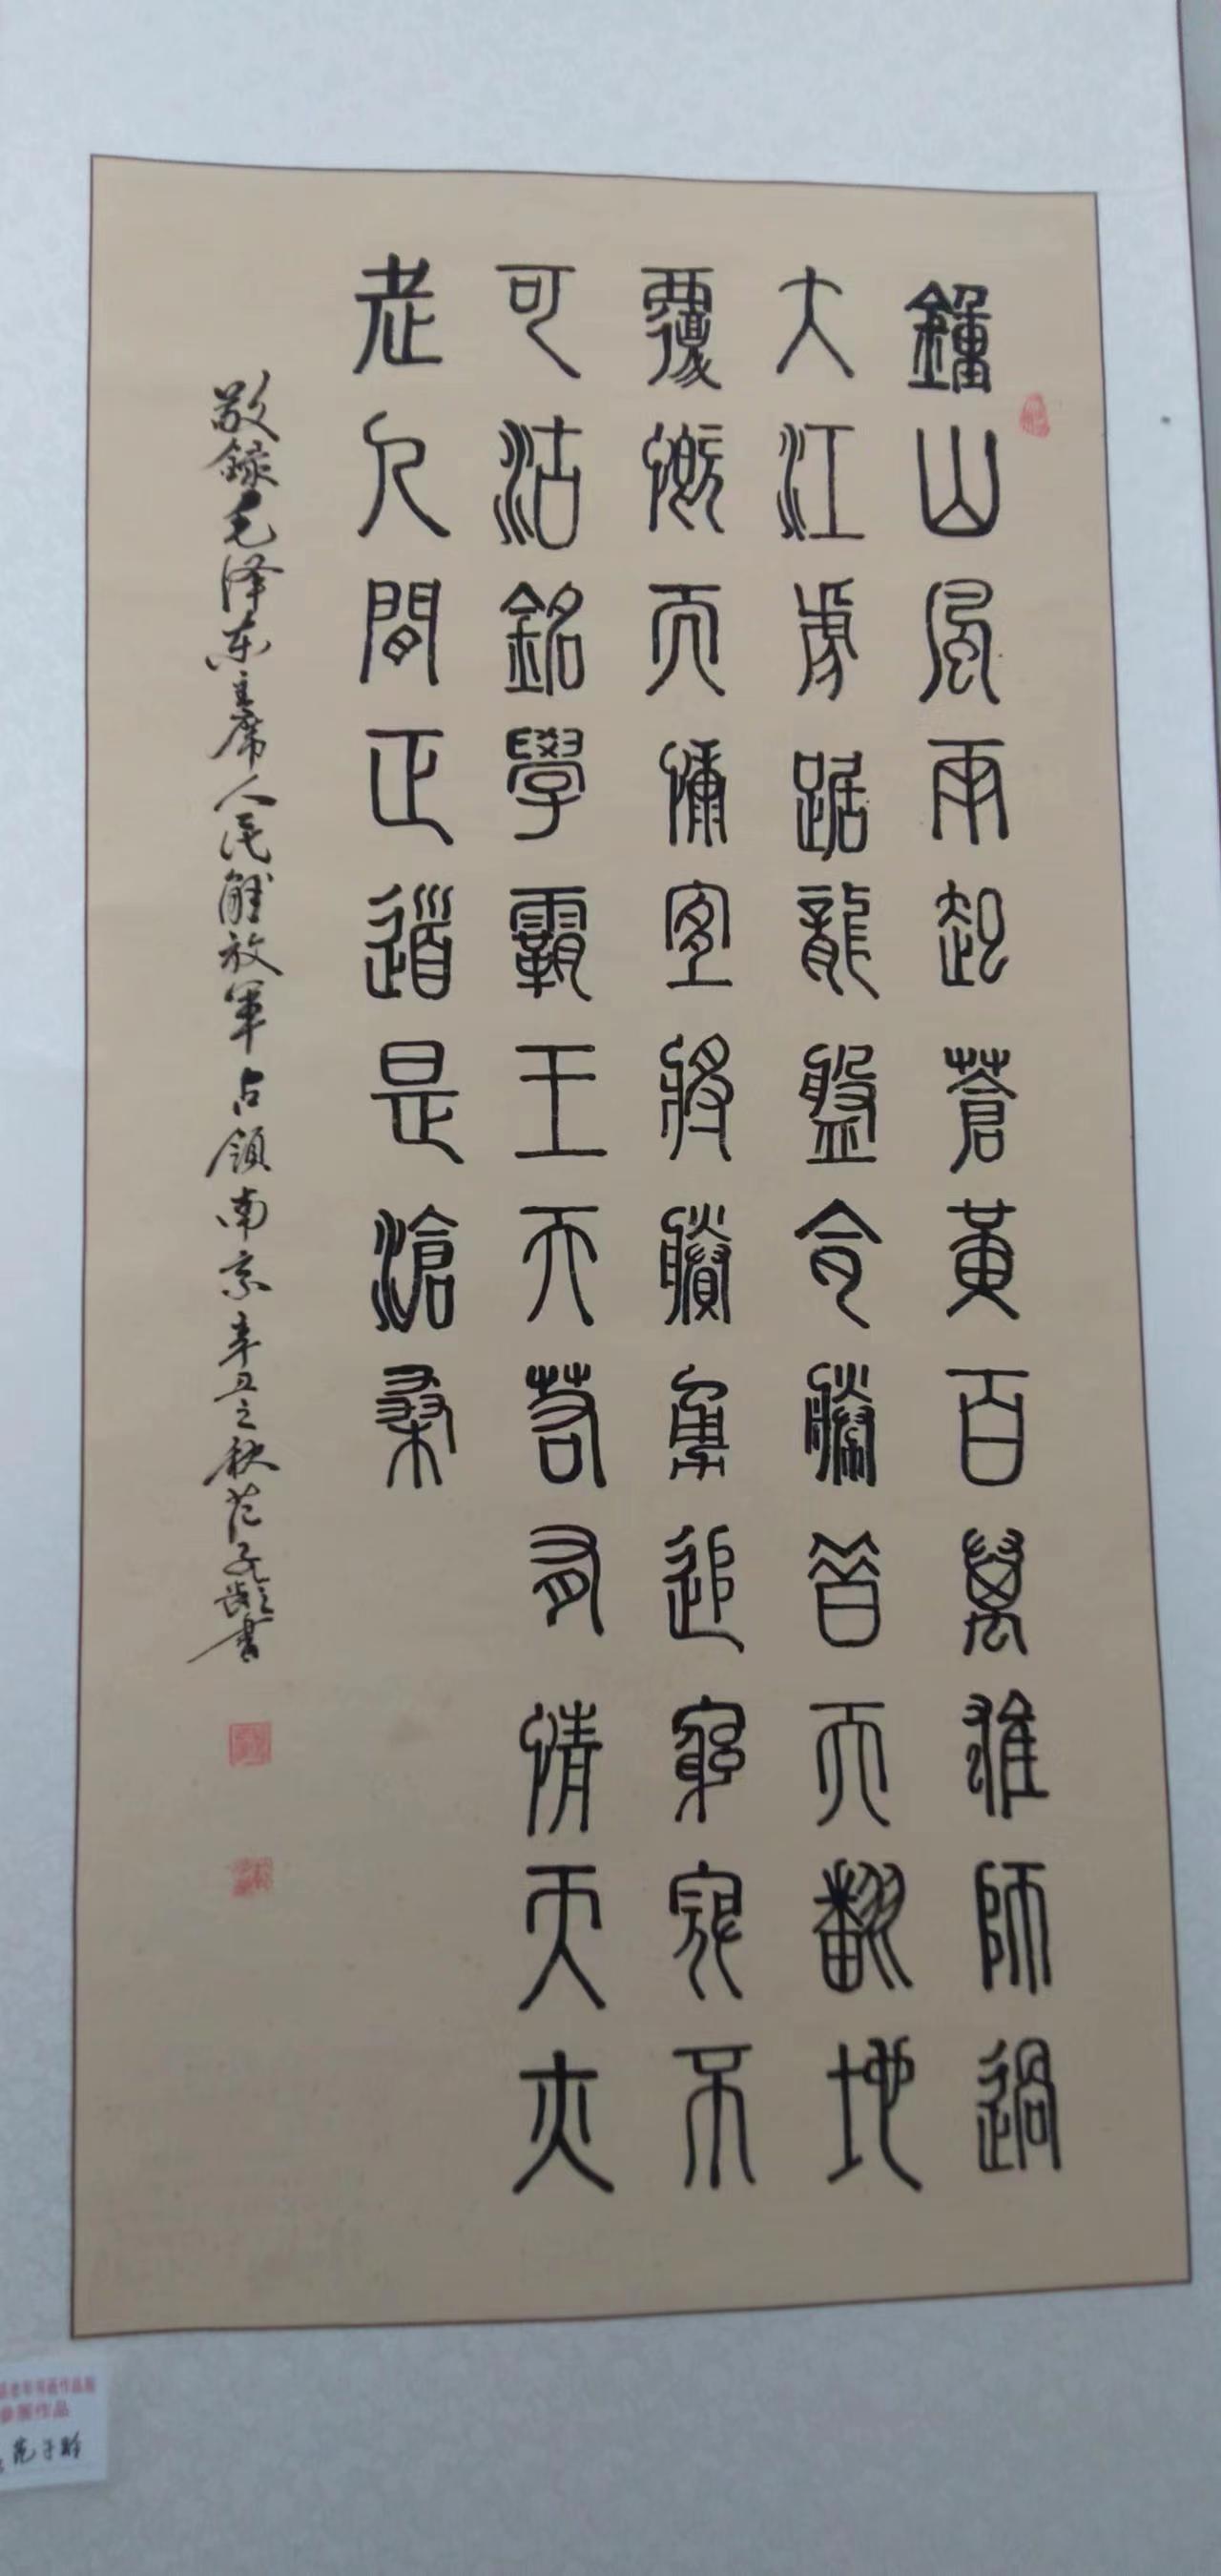 鍾山風雨起蒼黃百萬雄師過
大江虎踞龍盤今勝昔天翻地
覆慨而慷宜將勝勇追窮寇不
可沽銘學霸王天若有情天亦
老人間正道是滄桑
敬録毛泽东主席人民解放軍占領南京辛丑之秋范子齡書
老年书画作品展
参展作品
范子龄